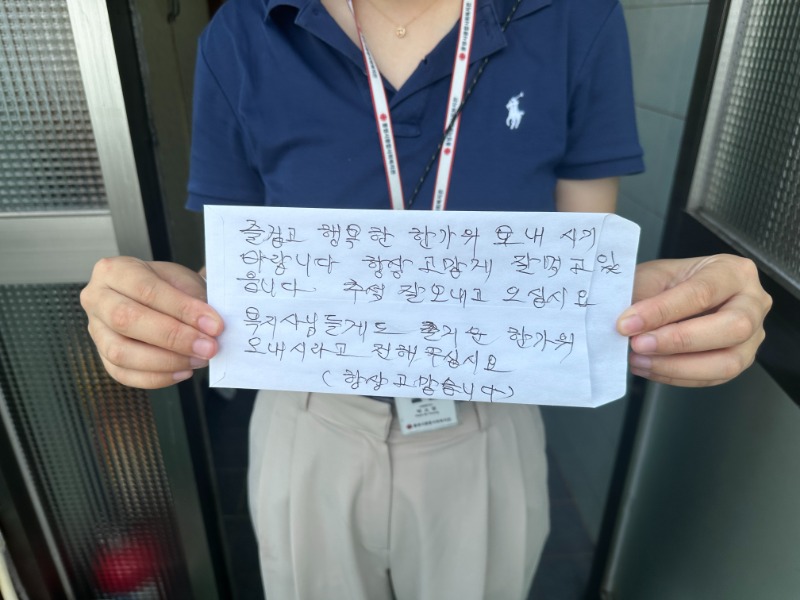 즐겁고 행복한 한가위 보내 시기
바랍니다 항상 고맙게 잘먹고있
읍니다. 추석 잘보내고 오십시요
복지사님들게도 즐거운 한가위
보내시라고 전해주십시요
(항상고맙습니다)